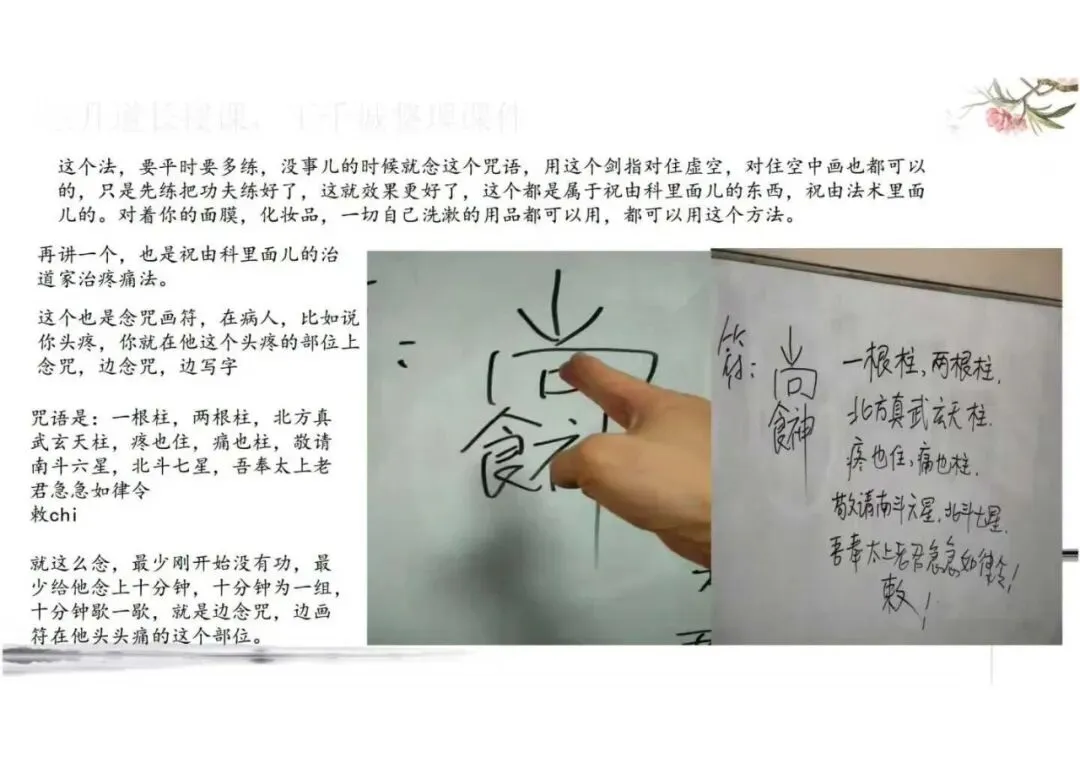 升道长授课,
整理课件
这个法，要平时要多练，没事儿的时候就念这个咒语，用这个剑指对住虚空，对住空中画也都可以
的，只是先练把功夫练好了，这就效果更好了，这个都是属于祝由科里面儿的东西，祝由法术里面
儿的。对着你的面膜，化妆品，一切自己洗漱的用品都可以用，都可以用这个方法。
再讲一个，也是祝由科里面儿的治
道家治疼痛法。
这个也是念咒画符，在病人，比如说
你头疼，你就在他这个头疼的部位上
念咒，边念咒，边写字
咒语是：一根柱，两根柱，北方真
武玄天柱，疼也住，痛也柱，敬请
南斗六星，北斗七星，吾奉太上老
君急急如律令
敕chi
就这么念，最少刚开始没有功，最
少给他念上十分钟，十分钟为一组，
十分钟歇一歇，就是边念咒，边画
符在他头头痛的这个部位。
尚
食
符：
尚
食神
一根柱，两根柱，
北方真武玄天柱.
疼也住，痛也柱.
敬请南斗六星，北斗七星，
吾奉太上老君急急如律令！
敕！